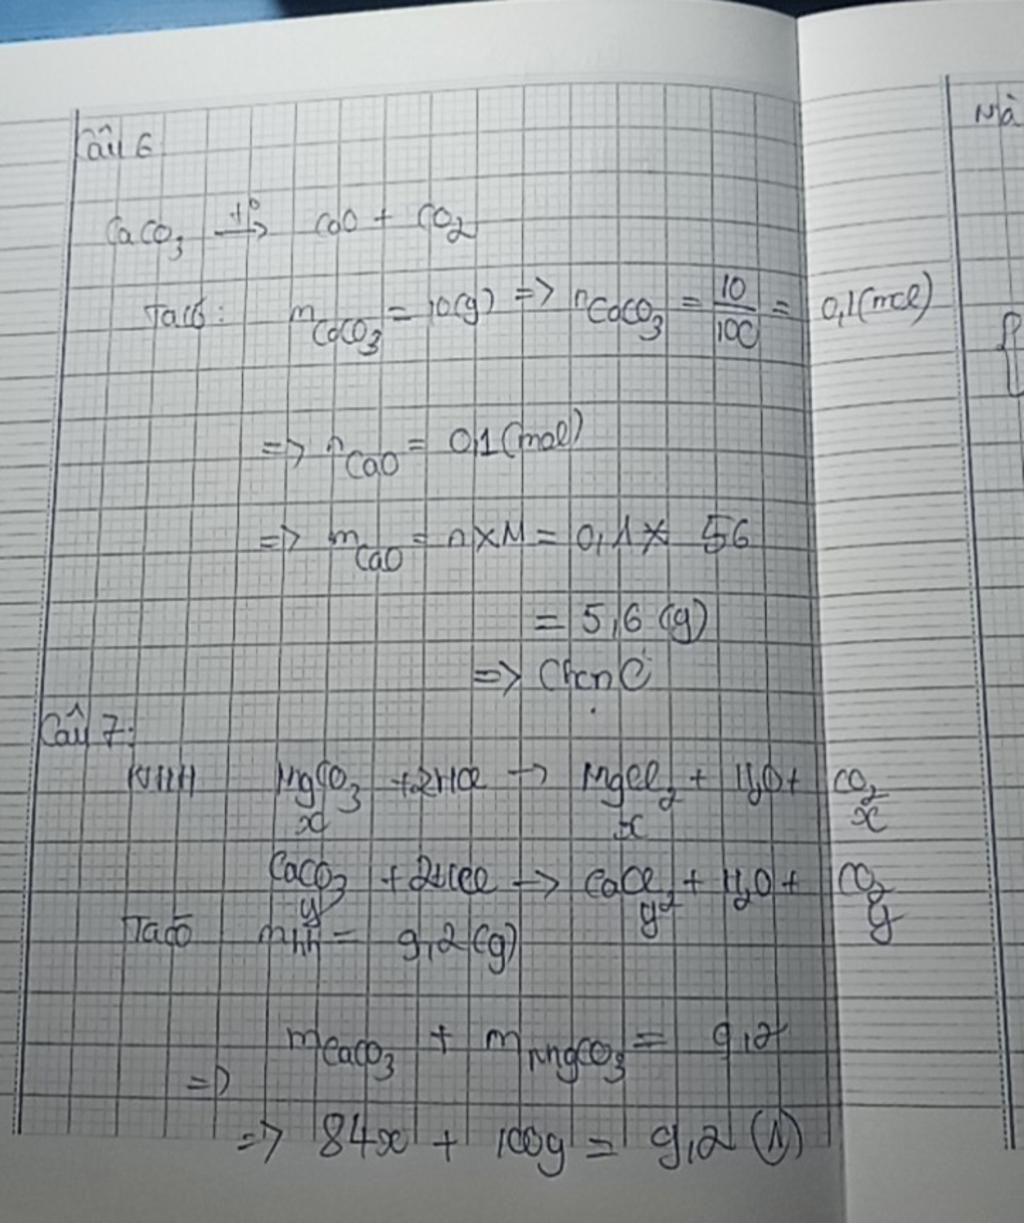 Câu 6
CaCO₃ t°→ CaO + CO₂
Ta có: m CaCO₃ = 10(g) => n CaCO₃ = 10/100 = 0,1(mol)
=> n CaO = 0,1(mol)
=> m CaO = n x M = 0,1 x 56
= 5,6 (g)
=> Chọn C
Câu 7:
PTHH MgCO₃ + 2HCl → MgCl₂ + H₂O + CO₂
x x x
CaCO₃ + 2HCl → CaCl₂ + H₂O + CO₂
y y y
Ta có m hh = 9,2(g)
m CaCO₃ + m MgCO₃ = 9,2
=>
=> 84x + 100y = 9,2 (1)
Mà
{